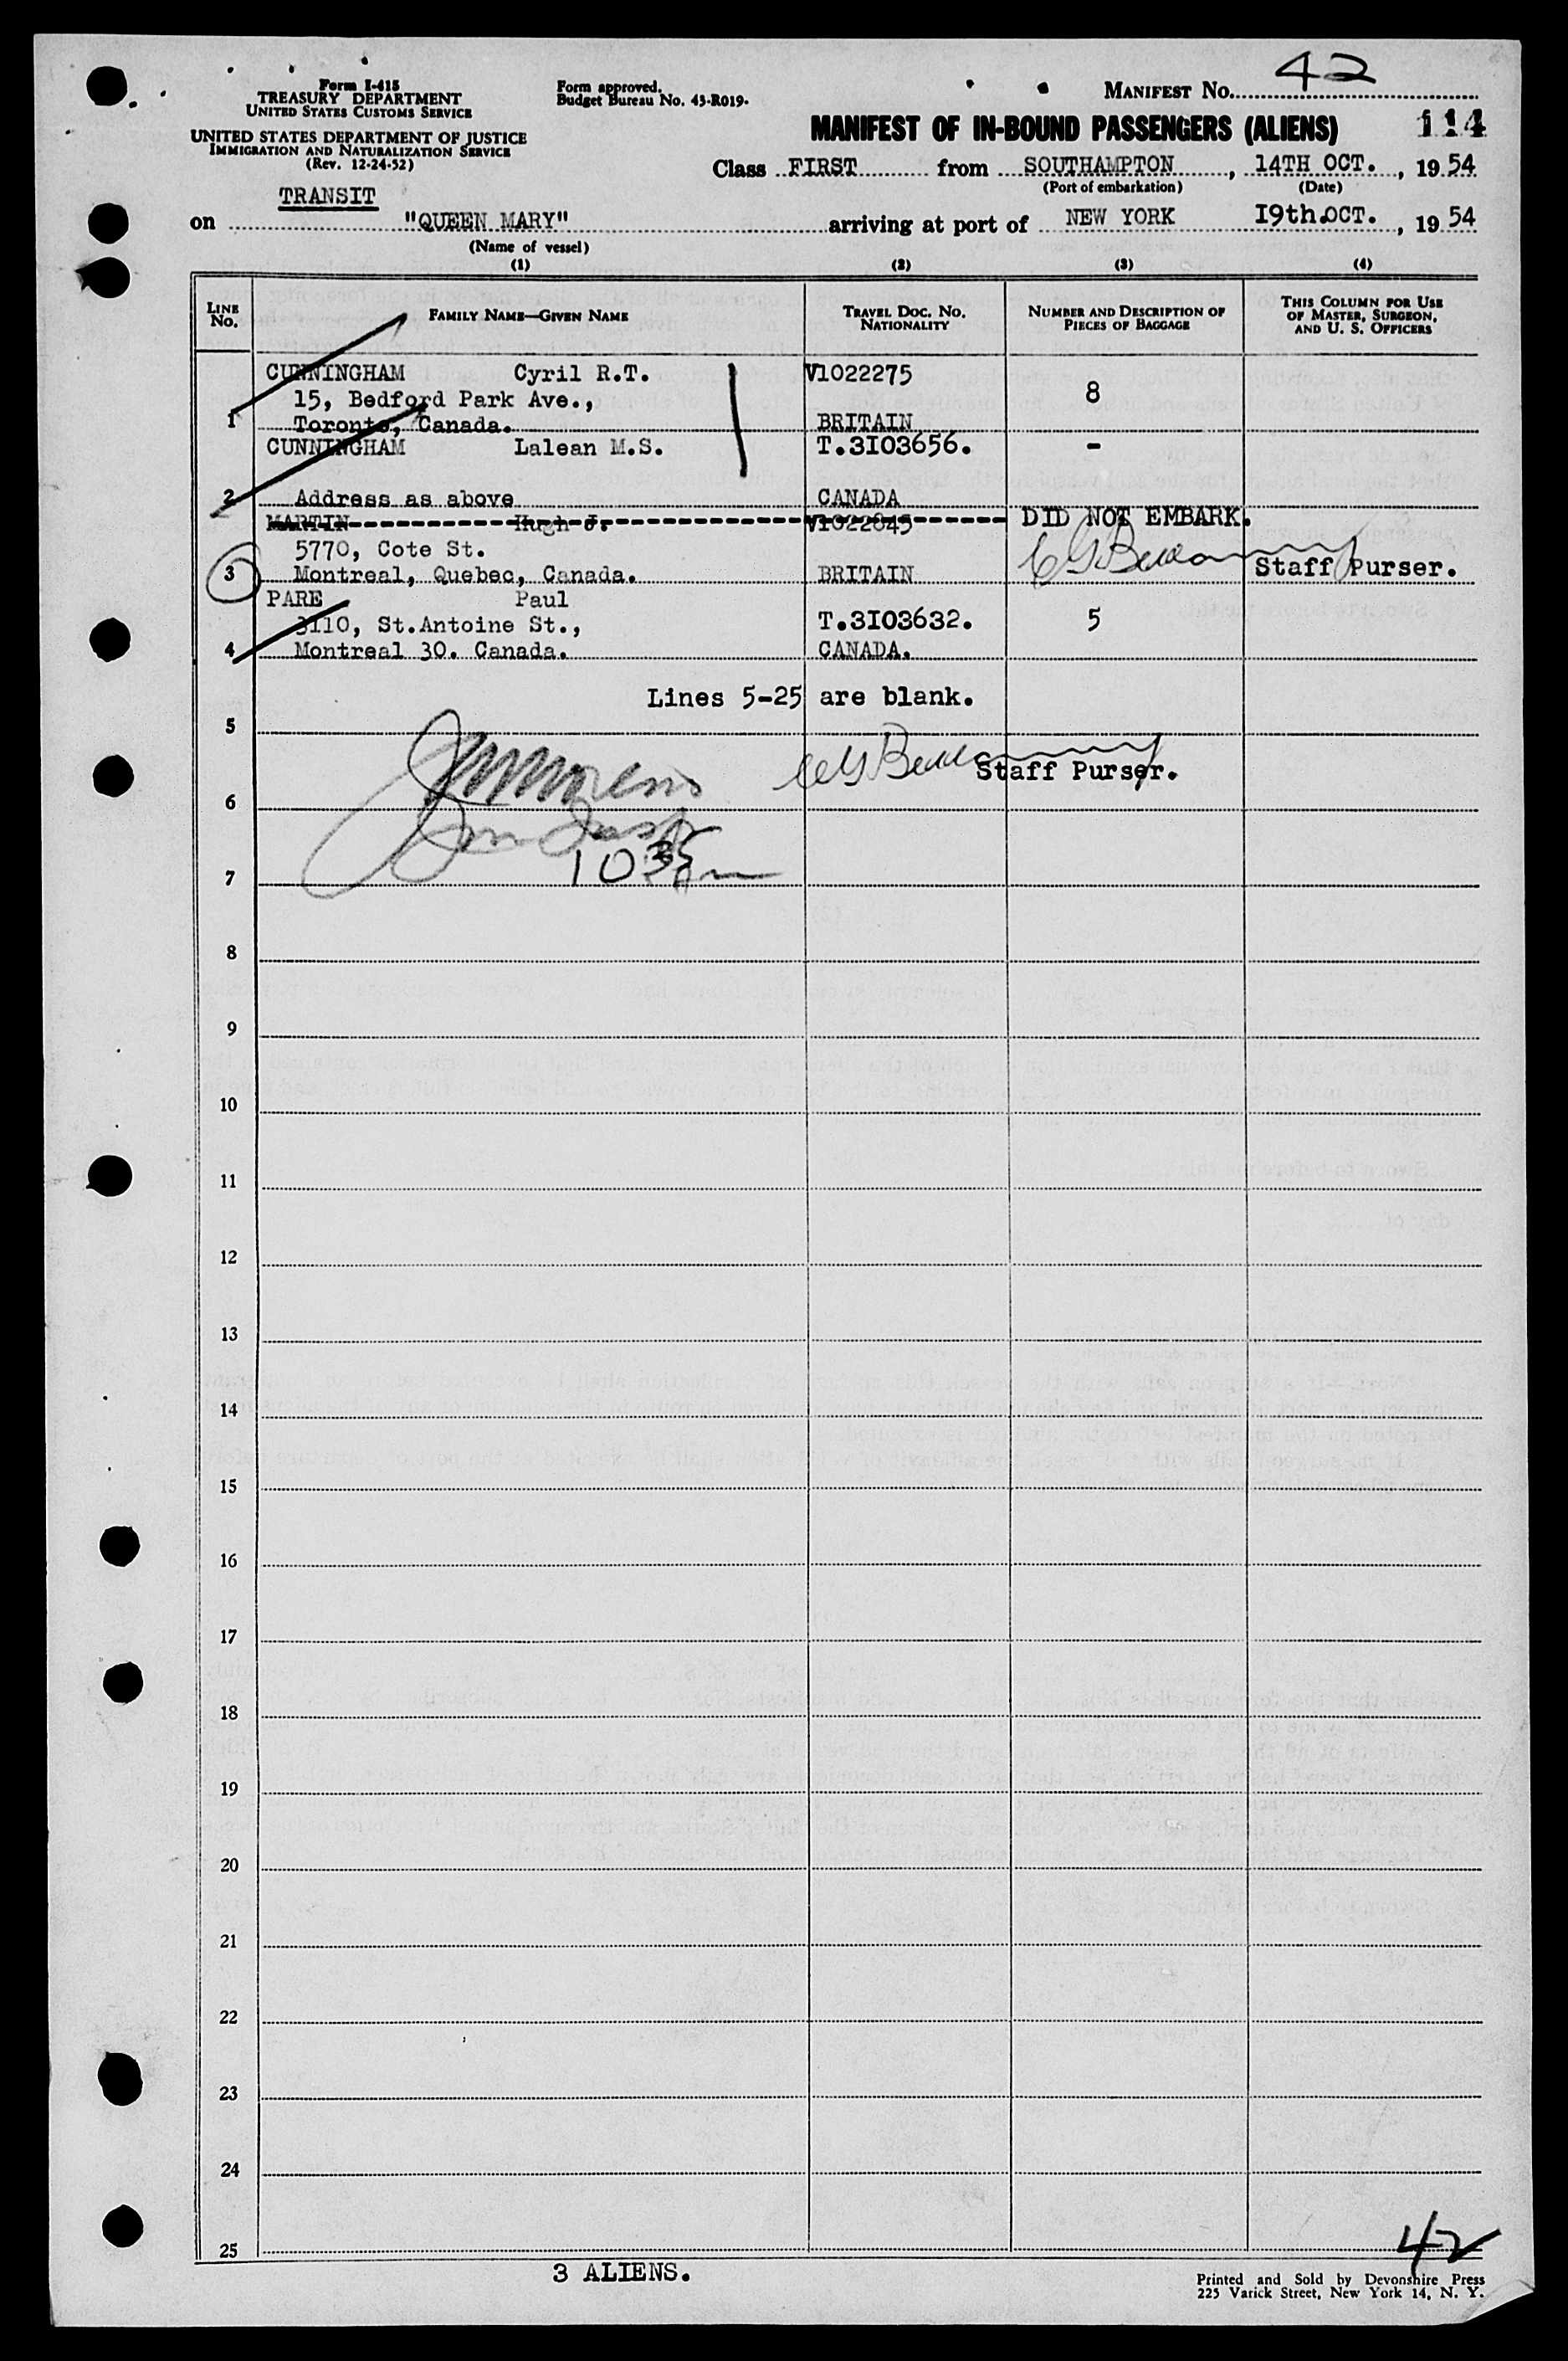 Form I-415
TREASURY DEPARTMENT
UNITED STATES CUSTOMS SERVICE
UNITED STATES DEPARTMENT OF JUSTICE
IMMIGRATION AND NATURALIZATION SERVICE
(Rev. 12-24-52)
Form approved.
Budget Bureau No. 43-R019.
MANIFEST No. 42
MANIFEST OF IN-BOUND PASSENGERS (ALIENS) 114
Class FIRST from SOUTHAMPTON, 14TH OCT., 1954
(Port of embarkation) (Date)
TRANSIT
on "QUEEN MARY" arriving at port of NEW YORK 19th.OCT., 1954
(Name of vessel)
(1) (2) (3) (4)
LINE No. FAMILY NAME—GIVEN NAME TRAVEL DOC. No. NATIONALITY NUMBER AND DESCRIPTION OF PIECES OF BAGGAGE THIS COLUMN FOR USE OF MASTER, SURGEON, AND U. S. OFFICERS
CUNNINGHAM Cyril R.T. V1022275
15, Bedford Park Ave., 8
1 Toronto, Canada. BRITAIN
CUNNINGHAM Lalean M.S. T.3I03656. -
2 Address as above CANADA
MARTIN Hugh J. V1022845 DID NOT EMBARK.
5770, Cote St.
3 Montreal, Quebec, Canada. BRITAIN Staff Purser.
PARE Paul
3110, St.Antoine St., T.3I03632. 5
4 Montreal 30. Canada. CANADA.
Lines 5-25 are blank.
5
Staff Purser.
6
1035
7
8
9
10
11
12
13
14
15
16
17
18
19
20
21
22
23
24
42
25
3 ALIENS.
Printed and Sold by Devonshire Press
225 Varick Street, New York 14, N. Y.